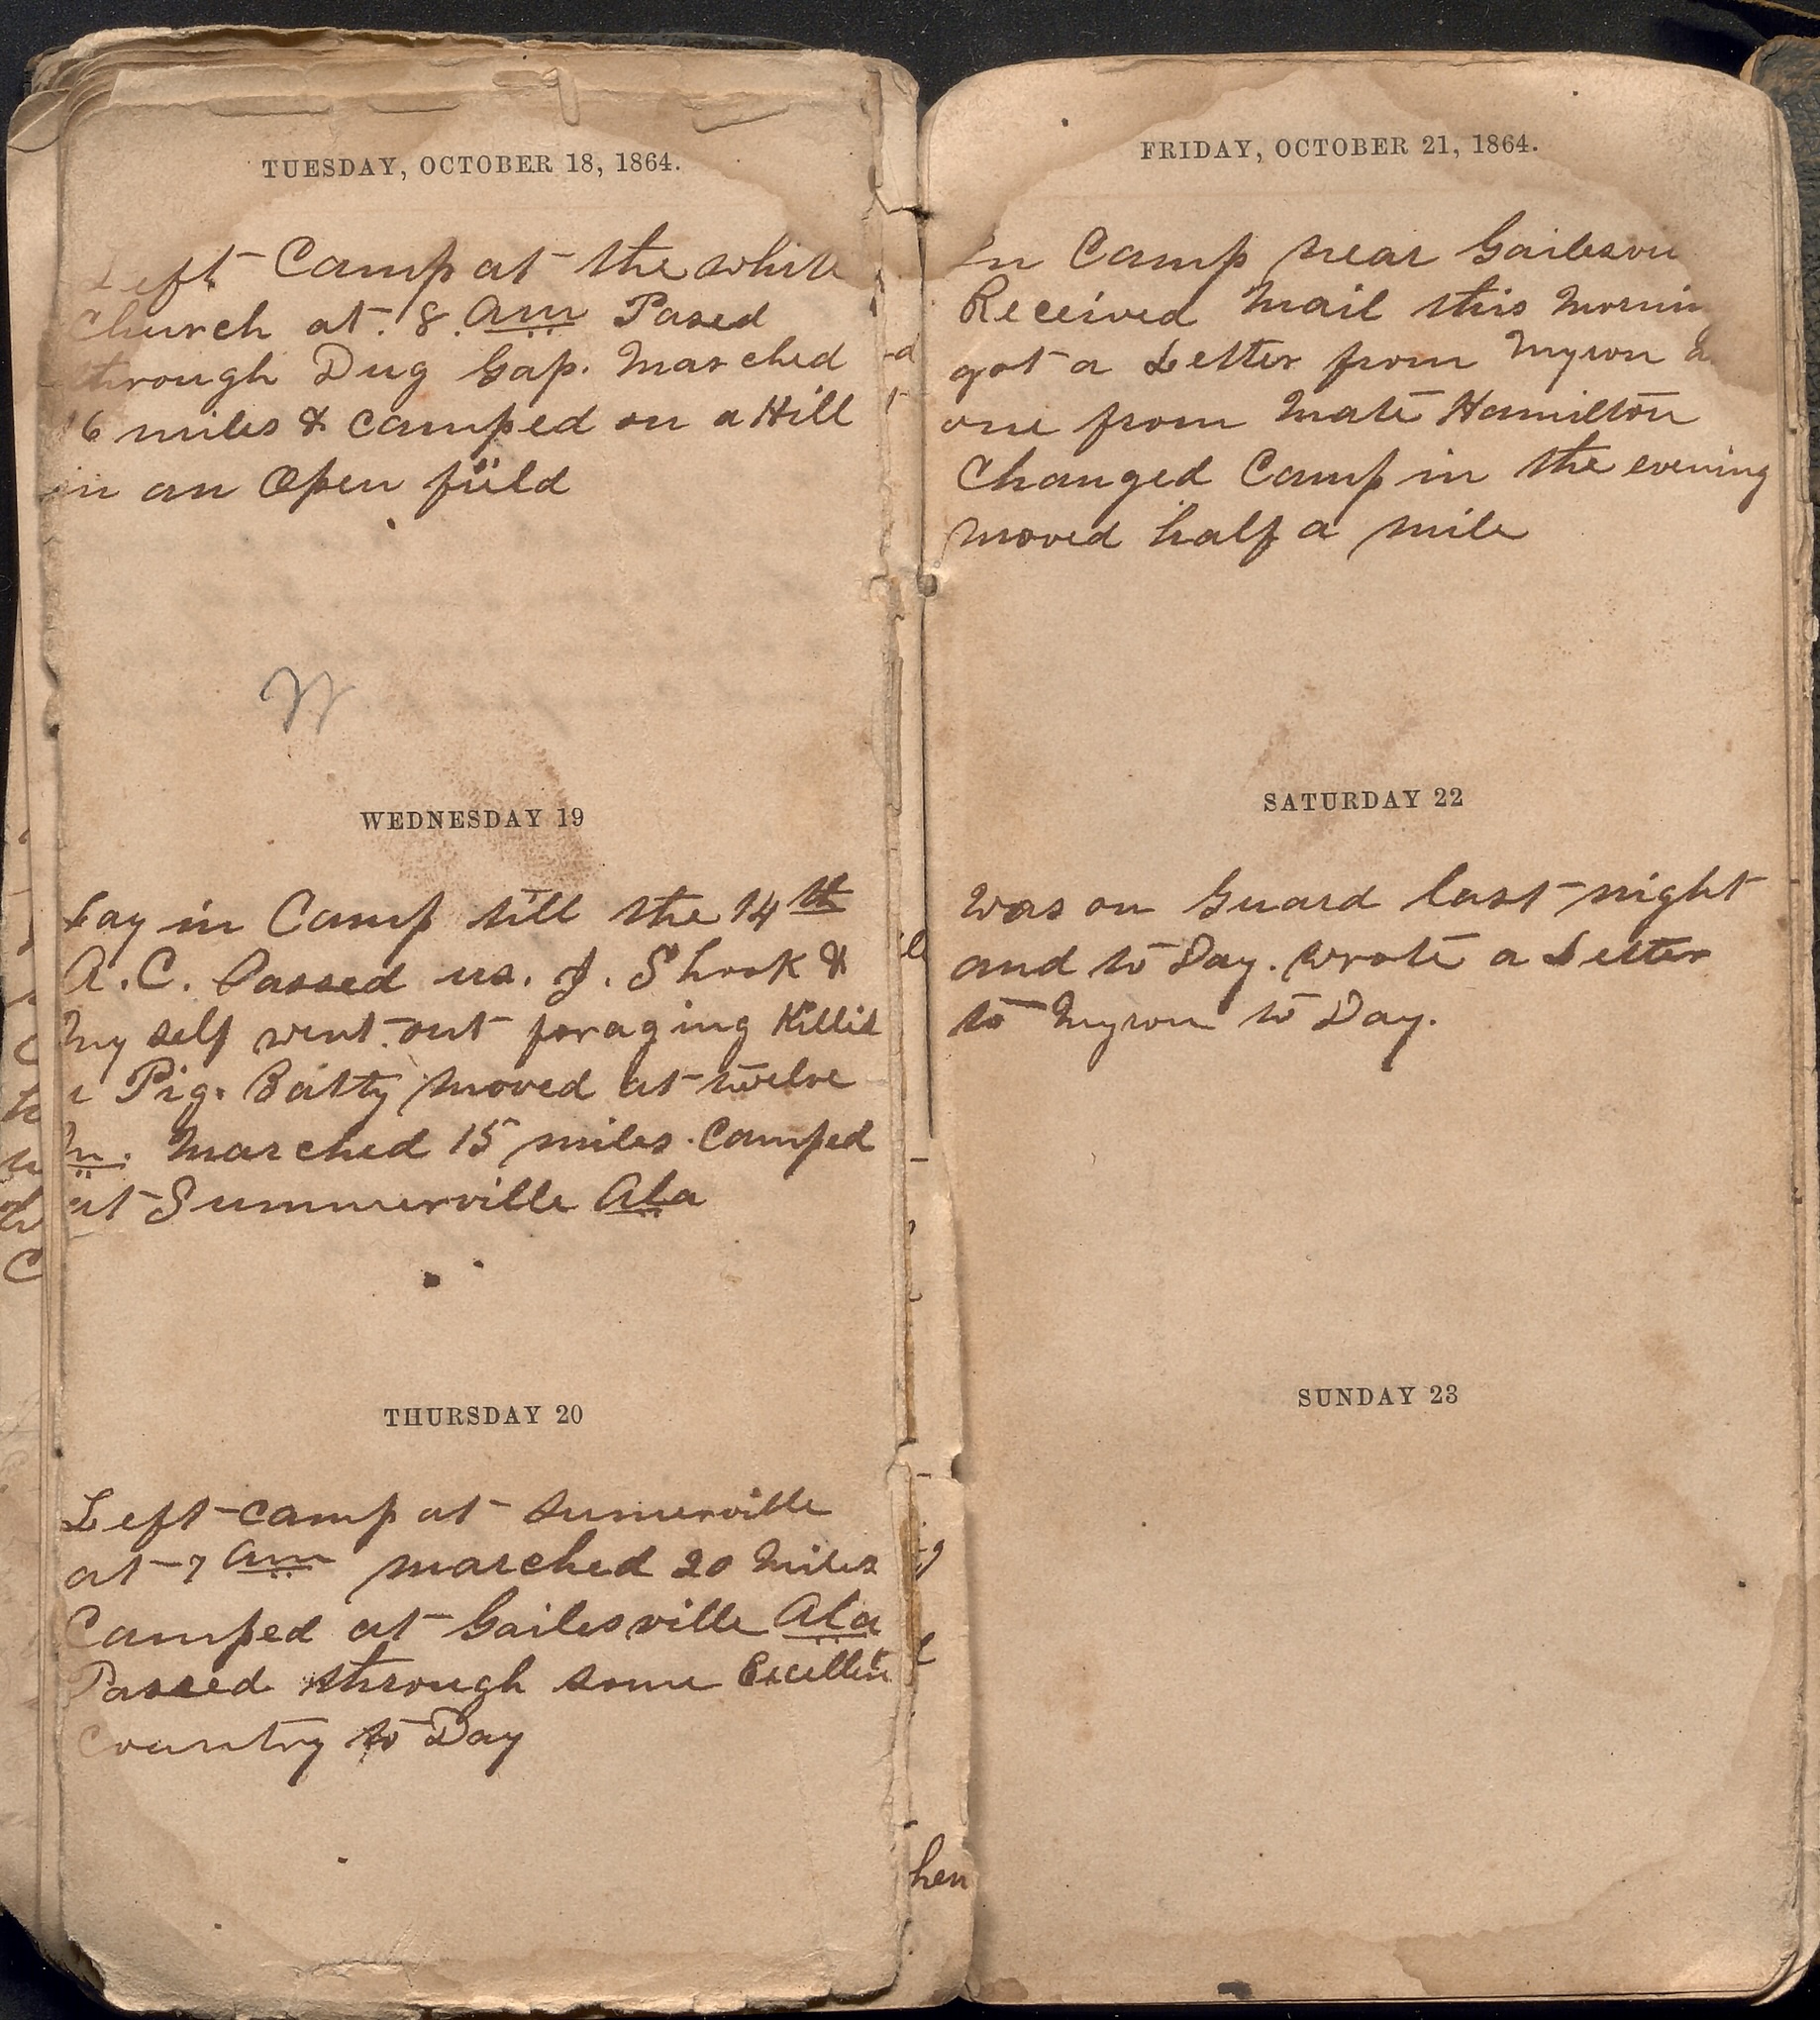 TUESDAY, OCTOBER 18, 1864.
Left Camp at the white
Church at. 8. am Pased
through Dug Gap. Marched
16 miles & camped on a Hill
in an Open field
WEDNESDAY 19
Lay in Camp till the 14th
A.C. Passed us. J. Shook &
My self went out foraging Killed
a Pig. Batty moved at twelve
M. Marched 15 miles. Camped
at Summerville Ala
THURSDAY 20
Left camp at Sumerville
at 7 am marched 20 Miles
Camped at Gailesville Ala
Passed through some Excellent
Country to Day
FRIDAY, OCTOBER 21, 1864.
In Camp near Gailesvi
Received Mail this Mornin
got a Letter from Myron
one from Mate Hamilton
Changed Camp in the evening
moved half a mile
SATURDAY 22
Was on Guard last night
and to Day. Wrote a Letter
to Myron to Day.
SUNDAY 23
hen